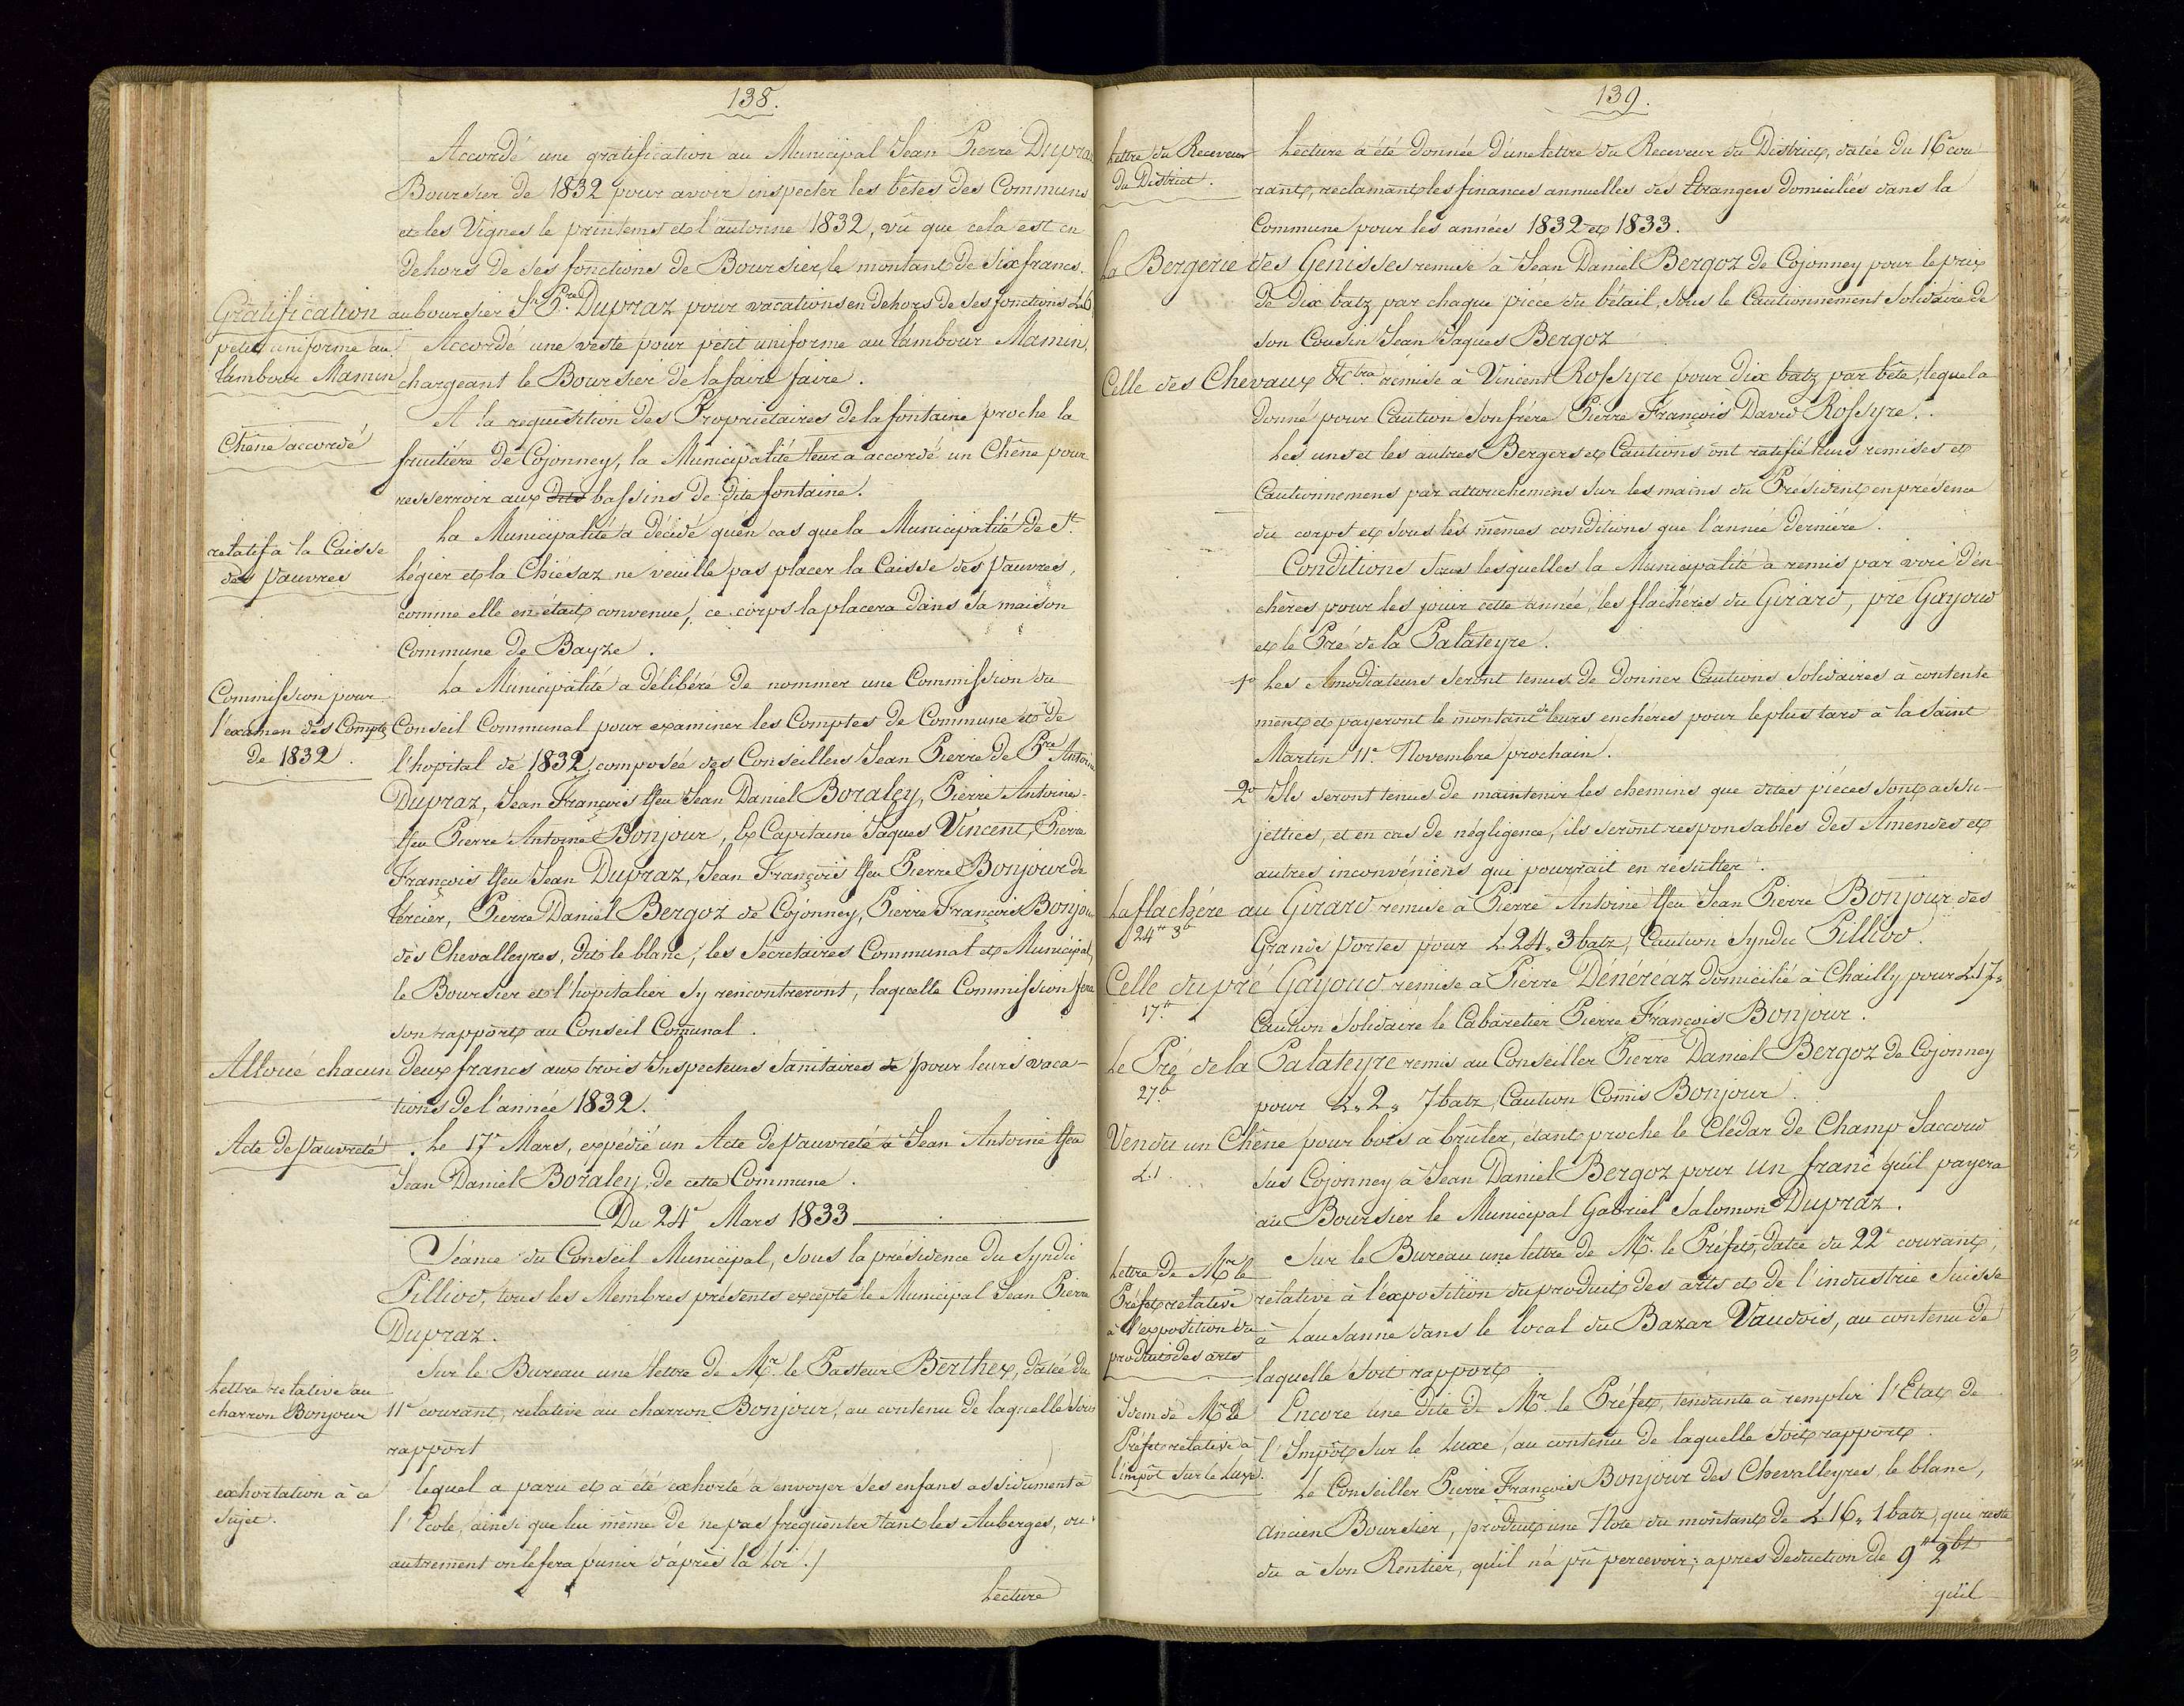 138.
Accordé une gratification au Municipal Jean Pierre Dupraz
Boursier de 1832 pour avoir inspecter les bêtes des Communs
et les Vignes le printems et l'automne 1832, vû que cela est en
dehors de ses fonctions de Boursier, le montant de six francs.
Gratification au boursier Jn Pre Dupraz pour vacations en dehors de ses fonctions L 6
petit uniforme au
tambour Mamin
Accordé une veste pour petit uniforme au tambour Mamin,
chargeant le Boursier de la faire faire.
Chêne accordé
A la requisition des Propriétaires de la fontaine proche la
fruitière de Cojonney, la Municipalité leur a accordé un Chêne pour
resserroir aux dits bassins de dite fontaine.
relatif à la Caisse
des Pauvres
La Municipalité a décidé qu'en cas que la Municipalité de St
Légier et la Chiésaz ne veuille pas placer la Caisse des Pauvres,
comme elle en était convenue, ce corps la placera dans sa maison
Commune de Bayze.
Commission pour
l'examen des Comptes
de 1832.
La Municipalité a délibéré de nommer une Commission du
Conseil Communal pour examiner les Comptes de Commune et de
l'hopital de 1832, composée des Conseillers Jean Pierre de Pre Antoine
Dupraz, Jean François ffeu Jean Daniel Boraley, Pierre Antoine
ffeu Pierre Antoine Bonjour, le Capitaine Jaques Vincent, Pierre
François ffeu Jean Dupraz, Jean François ffeu Pierre Bonjour de
tercier, Pierre Daniel Bergoz de Cojonney, Pierre François Bonjour
des Chevalleyres, dit le blanc, les Secretaires Communal et Municipal,
le Boursier et l'hopitalier s'y rencontreront, laquelle Commission fera
son rapport au Conseil Comunal.
Alloué chacun deux francs aux trois Inspecteurs Sanitaires de pour leurs vaca-
tions de l'année 1832.
Acte de Pauvreté
. Le 17e Mars, expédié un Acte de Pauvreté à Jean Antoine ffeu
Jean Daniel Boraley, de cette Commune.
Du 24e Mars 1833
Séance du Conseil Municipal, sous la présidence du Syndic
Pilliod, tous les Membres présents excepté le Municipal Jean Pierre
Dupraz.
Lettre relative au
charron Bonjour
Sur le Bureau une lettre de Mr. le Pasteur Berthex, datée du
11e courant, relative au charron Bonjour, au contenu de laquelle soit
rapport
exhortation à ce
sujet.
lequel a paru et a été exhorté à envoyer ses enfans assidument à
l'Ecole, ainsi que lui même de ne pas frequenter tant les Auberges, ou
autrement on le fera punir d'après la Loi ./
Lecture
139.
Lettre du Receveur
du District.
Lecture a été donnée d'une lettre du Receveur du District, datée du 16e cou
rant, reclamant les finances annuelles des Etrangers domiciliés dans la
Commune pour les années 1832 et 1833.
La Bergerie des Genisses remise à Jean Daniel Bergoz de Cojonney pour le prix
de dix batz par chaque pièce du bétail, sous le Cautionnement Solidaire de
son Cousin Jean Jaques Bergoz
Celle des Chevaux remise à Vincent Rossyre pour dix batz par bête, lequel a
donné pour Caution son frère Pierre François David Rossyre.
Les uns et les autres Bergers et Cautions ont ratifié leurs remises et
Cautionnemens par attouchemens sur les mains du Président en présence
du corps et sous les mêmes conditions que l'année dernière.
Conditions sous lesquelles la Municipalité a remis par voie d'en-
chères pour les jouir cette année, les flachères du Girard, pré Gayoud
et le Pré de la Palateyre.
1o Les Amodiateurs seront tenus de donner Cautions solidaires à contente
ment et payeront le montant de leurs enchères pour le plus tard à la Saint
Martin 11e. Novembre prochain.
2o Ils seront tenus de maintenir les chemins que dites pièces sont assu-
jetties, et en cas de négligence, ils seront responsables des Amendes et
autres inconvéniens qui pourrait en résulter.
La flachère au Girard remise à Pierre Antoine ffeu Jean Pierre Bonjour des
24 tt 3 b
Grands Portes pour L 24. 3 batz, Caution Syndic Pilliod.
Celle du pré Gayoud remise à Pierre Dénéréaz domicilié à Chailly pour L 17.
17 tt
Caution Solidaire le Cabaretier Pierre François Bonjour.
Le Pré de la Palateyre remis au Conseiller Pierre Daniel Bergoz de Cojonney
27 b
pour L. 2. 7 batz, Caution Comis Bonjour.
Vendu un Chêne pour bois à brûler, étant proche le Clédar de Champ Jaccoud
L 1.
sus Cojonney à Jean Daniel Bergoz pour un franc qu'il payera
au Boursier le Municipal Gabriel Salomon Dupraz.
Lettre de Mr le
Préfet relative
à l'exposition du
produit des arts
Sur le Bureau une lettre de Mr. le Préfet, datée du 22e courant,
relative à l'exposition du produit des arts et de l'industrie Suisse
à Lausanne dans le local du Bazar Vaudois, au contenu de
laquelle soit rapport
Idem de Mr le
Préfet relative à
l'impôt sur le Luxe.
Encore une dite de Mr. le Préfet, tendante à remplir l'Etat de
l'Impôt sur le Luxe, au contenu de laquelle soit rapport.
Le Conseiller Pierre François Bonjour des Chevalleyres, le blanc,
ancien Boursier, produit une Note du montant de L 16. 1 batz, qui reste
du à son Rentier, qu'il n'a pû percevoir; après deduction de 9 tt 2 bz
qu'il